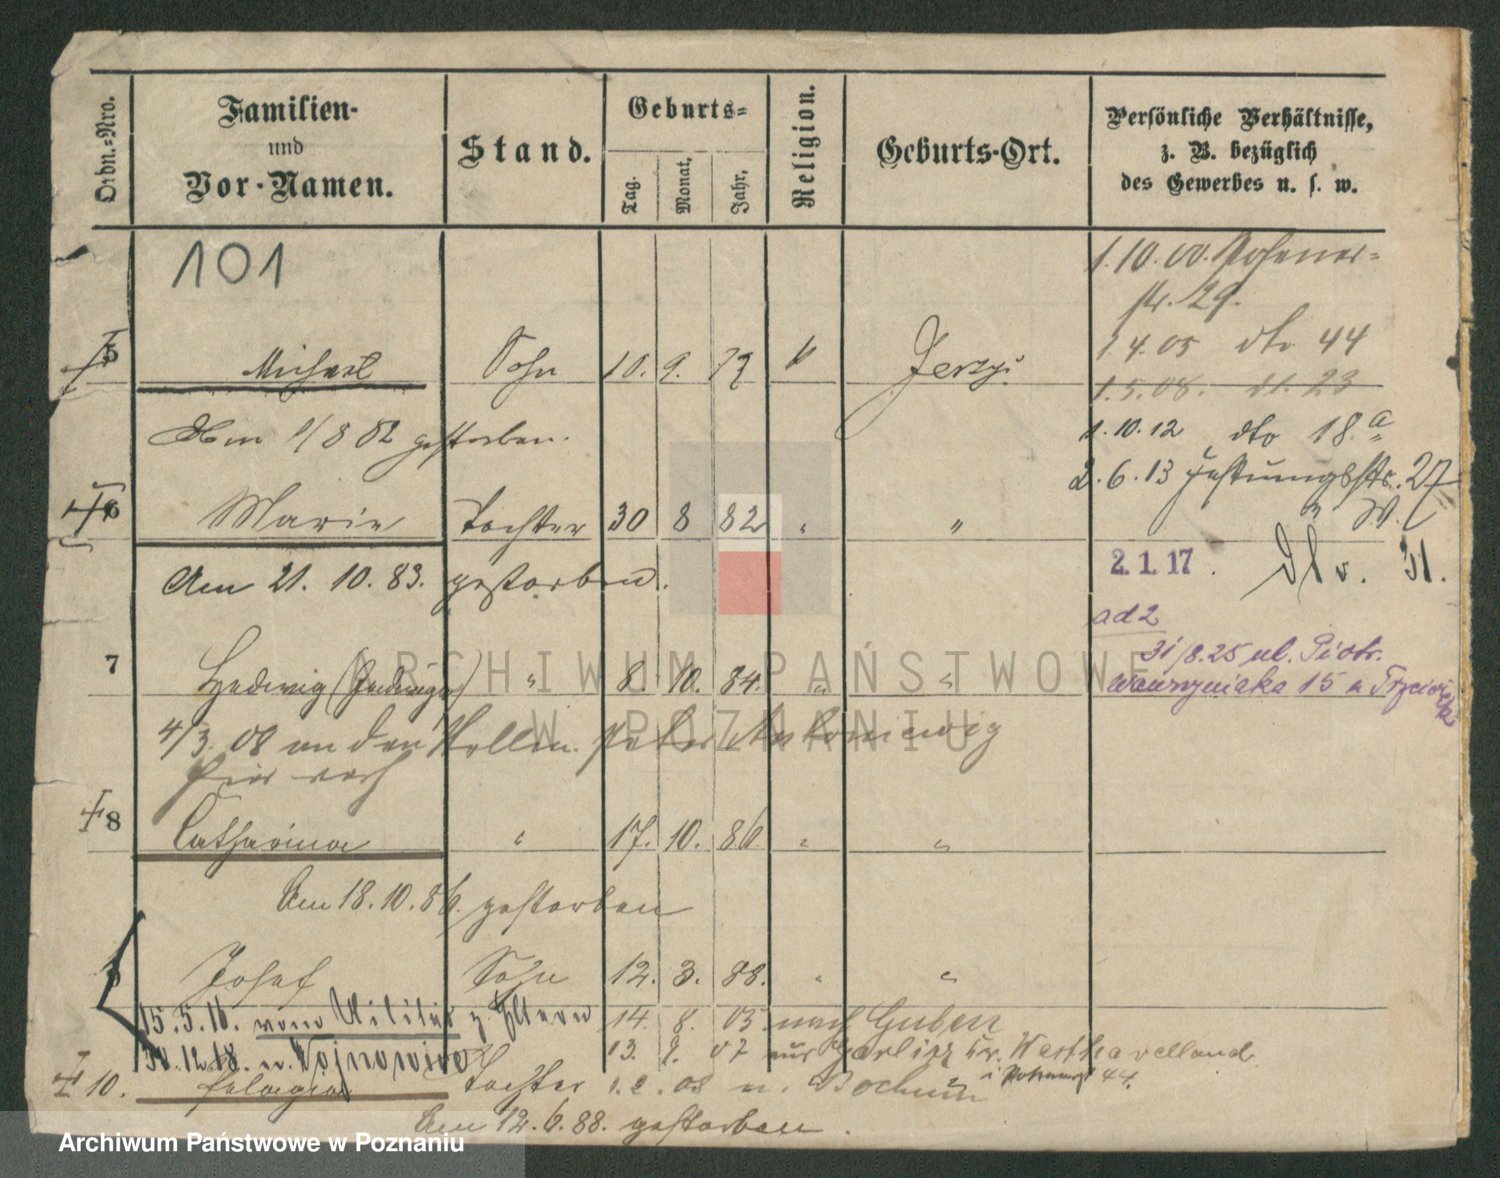 Ordn.-Nro.
Familien-
und
Vor-Namen.
Stand.
Geburts-
Tag.
Monat.
Jahr.
Religion.
Geburts-Ort.
Persönliche Verhältnisse,
z. B. bezüglich
des Gewerbes u. s. w.
101
1.10.00. Posener-
str. 29.
1.4.05 dto 44
1.5.08. dt. 23
1.10.12 dto 18.a
2.6.13 Festungsstr. 27
5 Michael Sohn 10. 9. 79 k Jerzy.
Am 1/8 82 gestorben.
6 Marie Tochter 30 8 82 " "
Am 21. 10. 83. gestorben.
2.1.17. 31.
ad 2
31/8.25 ul. Piotr.
Wawrzyniaka 15
7 Hedwig (Jadwiga) " 8. 10. 84. " "
4/3. 08 an den Peter Antoniewig
8 Catharina " 17. 10. 86. " "
Am 18.10.86. gestorben
9 Josef Sohn 12. 3. 88. " "
15.5.16. vom Militär z. Eltern 14. 8. 05 nach Guben
30.12.18. n. Wojnowice 13. 9. 07 aus Kr. Westhavelland
10. Pelagia Tochter 1.2.08 n. Bochum
Am 12.6.88. gestorben.
ARCHIWUM PAŃSTWOWE
W POZNANIU
Archiwum Państwowe w Poznaniu